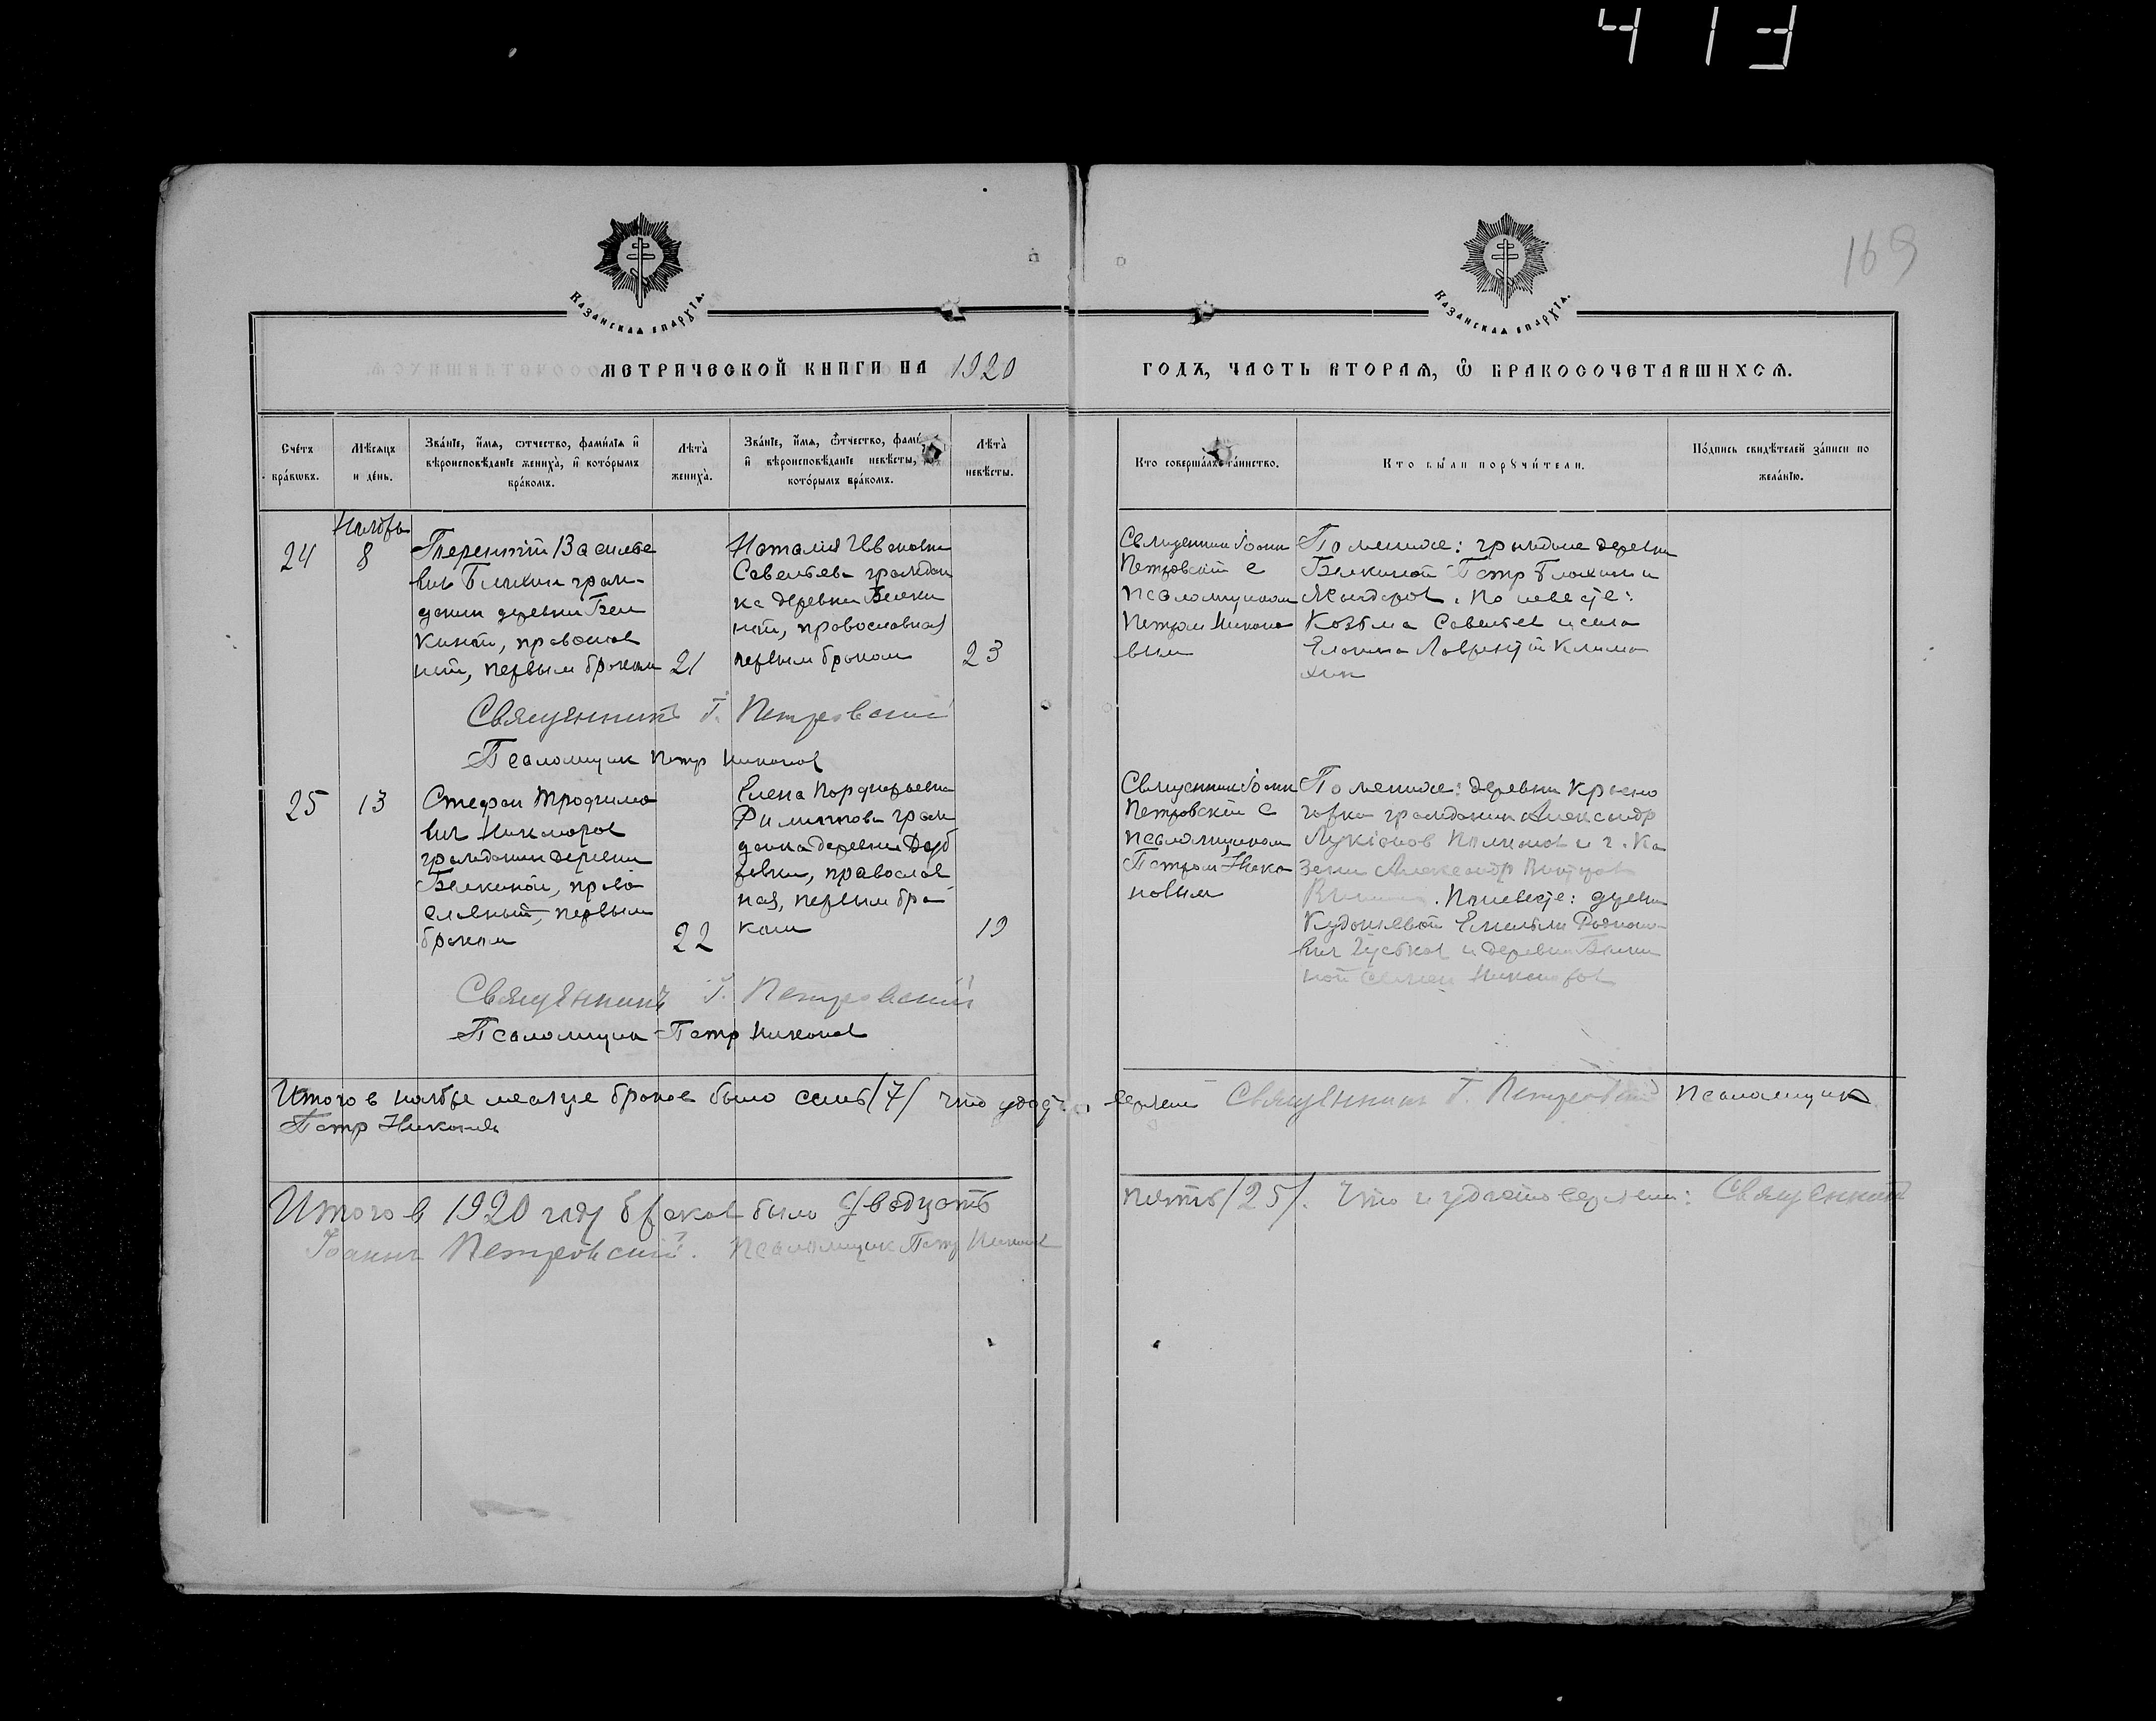 413
169
Казанская епархїа.
Казанская епархїа.
МЕТРИЧЕСКОЙ КНИГИ НА 1920
ГОДЪ, ЧАСТЬ ВТОРАѦ, Ѽ БРАКОСОЧЕТАВШИХСѦ.
Счéтъ брáкѡвъ.
Мѣ́сяцъ и дéнь.
Звáнїе, и҆́мѧ, ѻ҆́тчество, фамѝлїѧ и҆
вѣроисповѣ́данїе женихà, и҆ котóрымъ
брáкомъ.
Лѣ́та̀ женихà.
Звáнїе, и҆́мѧ, ѻ҆́тчество,
и҆ вѣроисповѣ́данїе невѣ́сты,
котóрымъ брáкомъ.
Лѣ́та̀ невѣ́сты.
Кто совершáлъ тáинство.
Кто бы́ли порꙋчи́тели.
Пóдпись свидѣ́телей зáписи по
желáнїю.
Ноябрь
24
8
Терентій Василье
вич Блохин граж-
данин деревни Бел
киной, православ
ный, первым браком
21
Наталия Ивановна
Савельева граждан
ка деревни Белки
ной, православная
первым браком
23
Священник Іоанн
Петровскій с
псаломщиком
Петром Никоно
вым
По женихе: граждане деревни
Белкиной Петр Блохин и
По невесте:
Козьма Савельев и села
Лаврентій Клима
хин
Священникъ І. Петровскій
Псаломщик Петр Никонов
25
13
Стефан Трофимо
вич Никаноров
гражданин деревни
Белкиной, право
славный, первым
браком
22
Елена Порфирьевна
Филиппова граж
данка деревни
православ
ная, первым бра
ком
19
Священник Іоанн
Петровскій с
псаломщиком
Петром Нико
новым
По женихе: деревни Красно
горка гражданин Александр
Лукіанов и г. Ка
зани Александр
По невесте: деревни
Емельян
вич и деревни Белки
ной Семен Никаноров
Священникъ І. Петровскій
Псаломщик Петр Никонов
Итого в ноябре месяце браков было семь /7/ что удостоверяем Священникъ І. Петровскій Псаломщик
Петр Никонов
Итого в 1920 году браков было двадцать пять /25/. Что и удостоверяем: Священникъ
Іоаннъ Петровскій. Псаломщик Петр Никонов